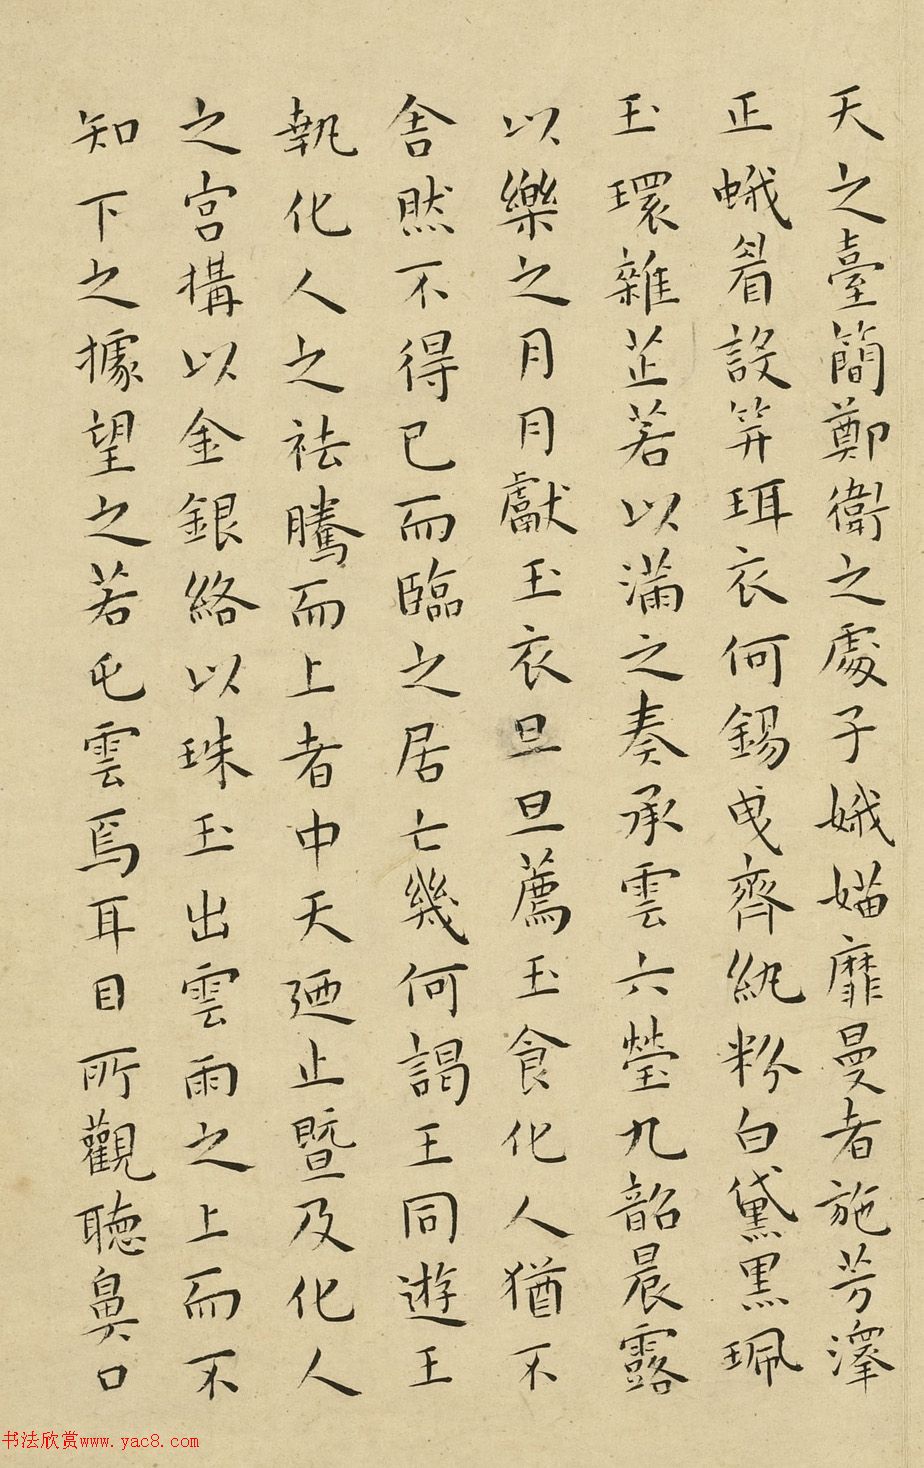 天之臺簡鄭衛之處子娥媌靡曼者施芳澤
正蛾眉設笄珥衣阿錫曳齊紈粉白黛黑珮
玉環雜芷若以滿之奏承雲六瑩九韶晨露
以樂之月月獻玉衣旦旦薦玉食化人猶不
舍然不得已而臨之居亡幾何謁王同遊王
執化人之袪騰而上者中天迺止暨及化人
之宮構以金銀絡以珠玉出雲雨之上而不
知下之據望之若屯雲焉耳目所觀聽鼻口
书法欣赏www.yac8.com